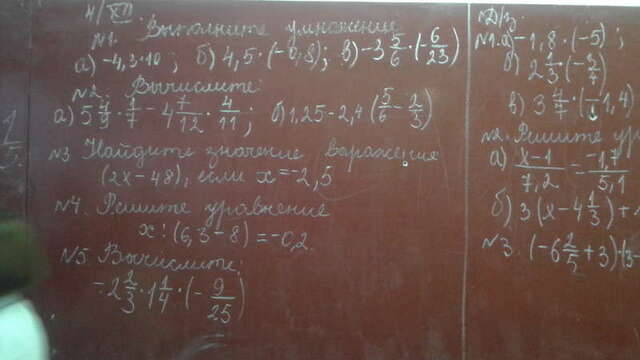 4/XII
N1. Выполните умножение
а) -4,3·10; б) 4,5·(-0,8); в) -3 5/6·(-6/23)
N2. Вычислите:
а) 5 4/9·1/7 - 4 7/12·4/11; б) 1,25-2,4(5/6-2/3)
N3 Найдите значение выражения
(2х-48), если х=-2,5
N4. Решите уравнение
х:(6,3-8)=-0,2.
N5 Вычислите:
-2 2/3·1 1/4·(-9/25)
Д/з
N1. а) -1,8·(-5);
б) 2 1/3·(-3/7)
в) 3 4/7·( 1,4)
N2. Решите ур
а) х-1/7,2 = -1,7/5,1
б) 3(х-4 1/3)+
N3. (-6 2/5+3)·(3-
1/5